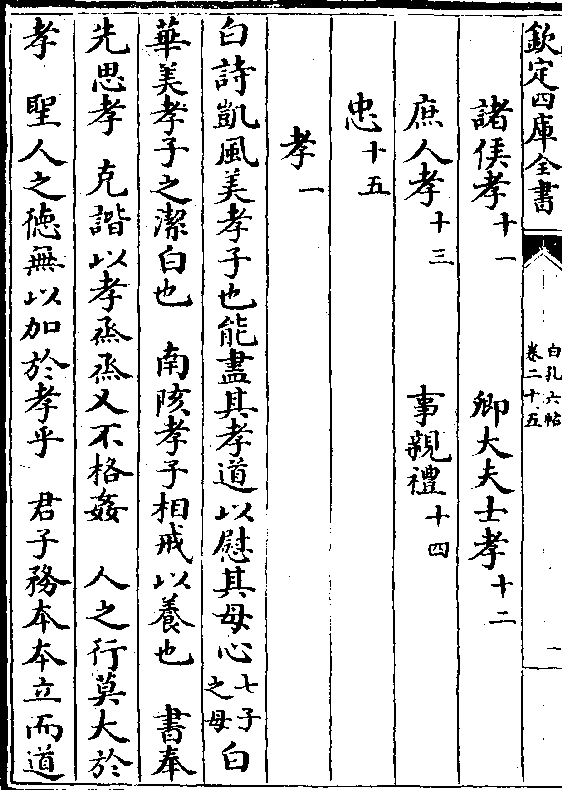 欽定四庫全書
白孔六帖
卷二十五
一
諸侯孝十一 卿大夫士孝十二
庶人孝十三 事親禮十四
忠十五
孝一
白詩凱風美孝子也能盡其孝道以慰其母心七子之母白
華美孝子之潔白也 南陔孝子相戒以養也 書奉
先思孝 克諧以孝烝烝乂不格姦 人之行莫大於
孝 聖人之德無以加於孝乎 君子務本本立而道